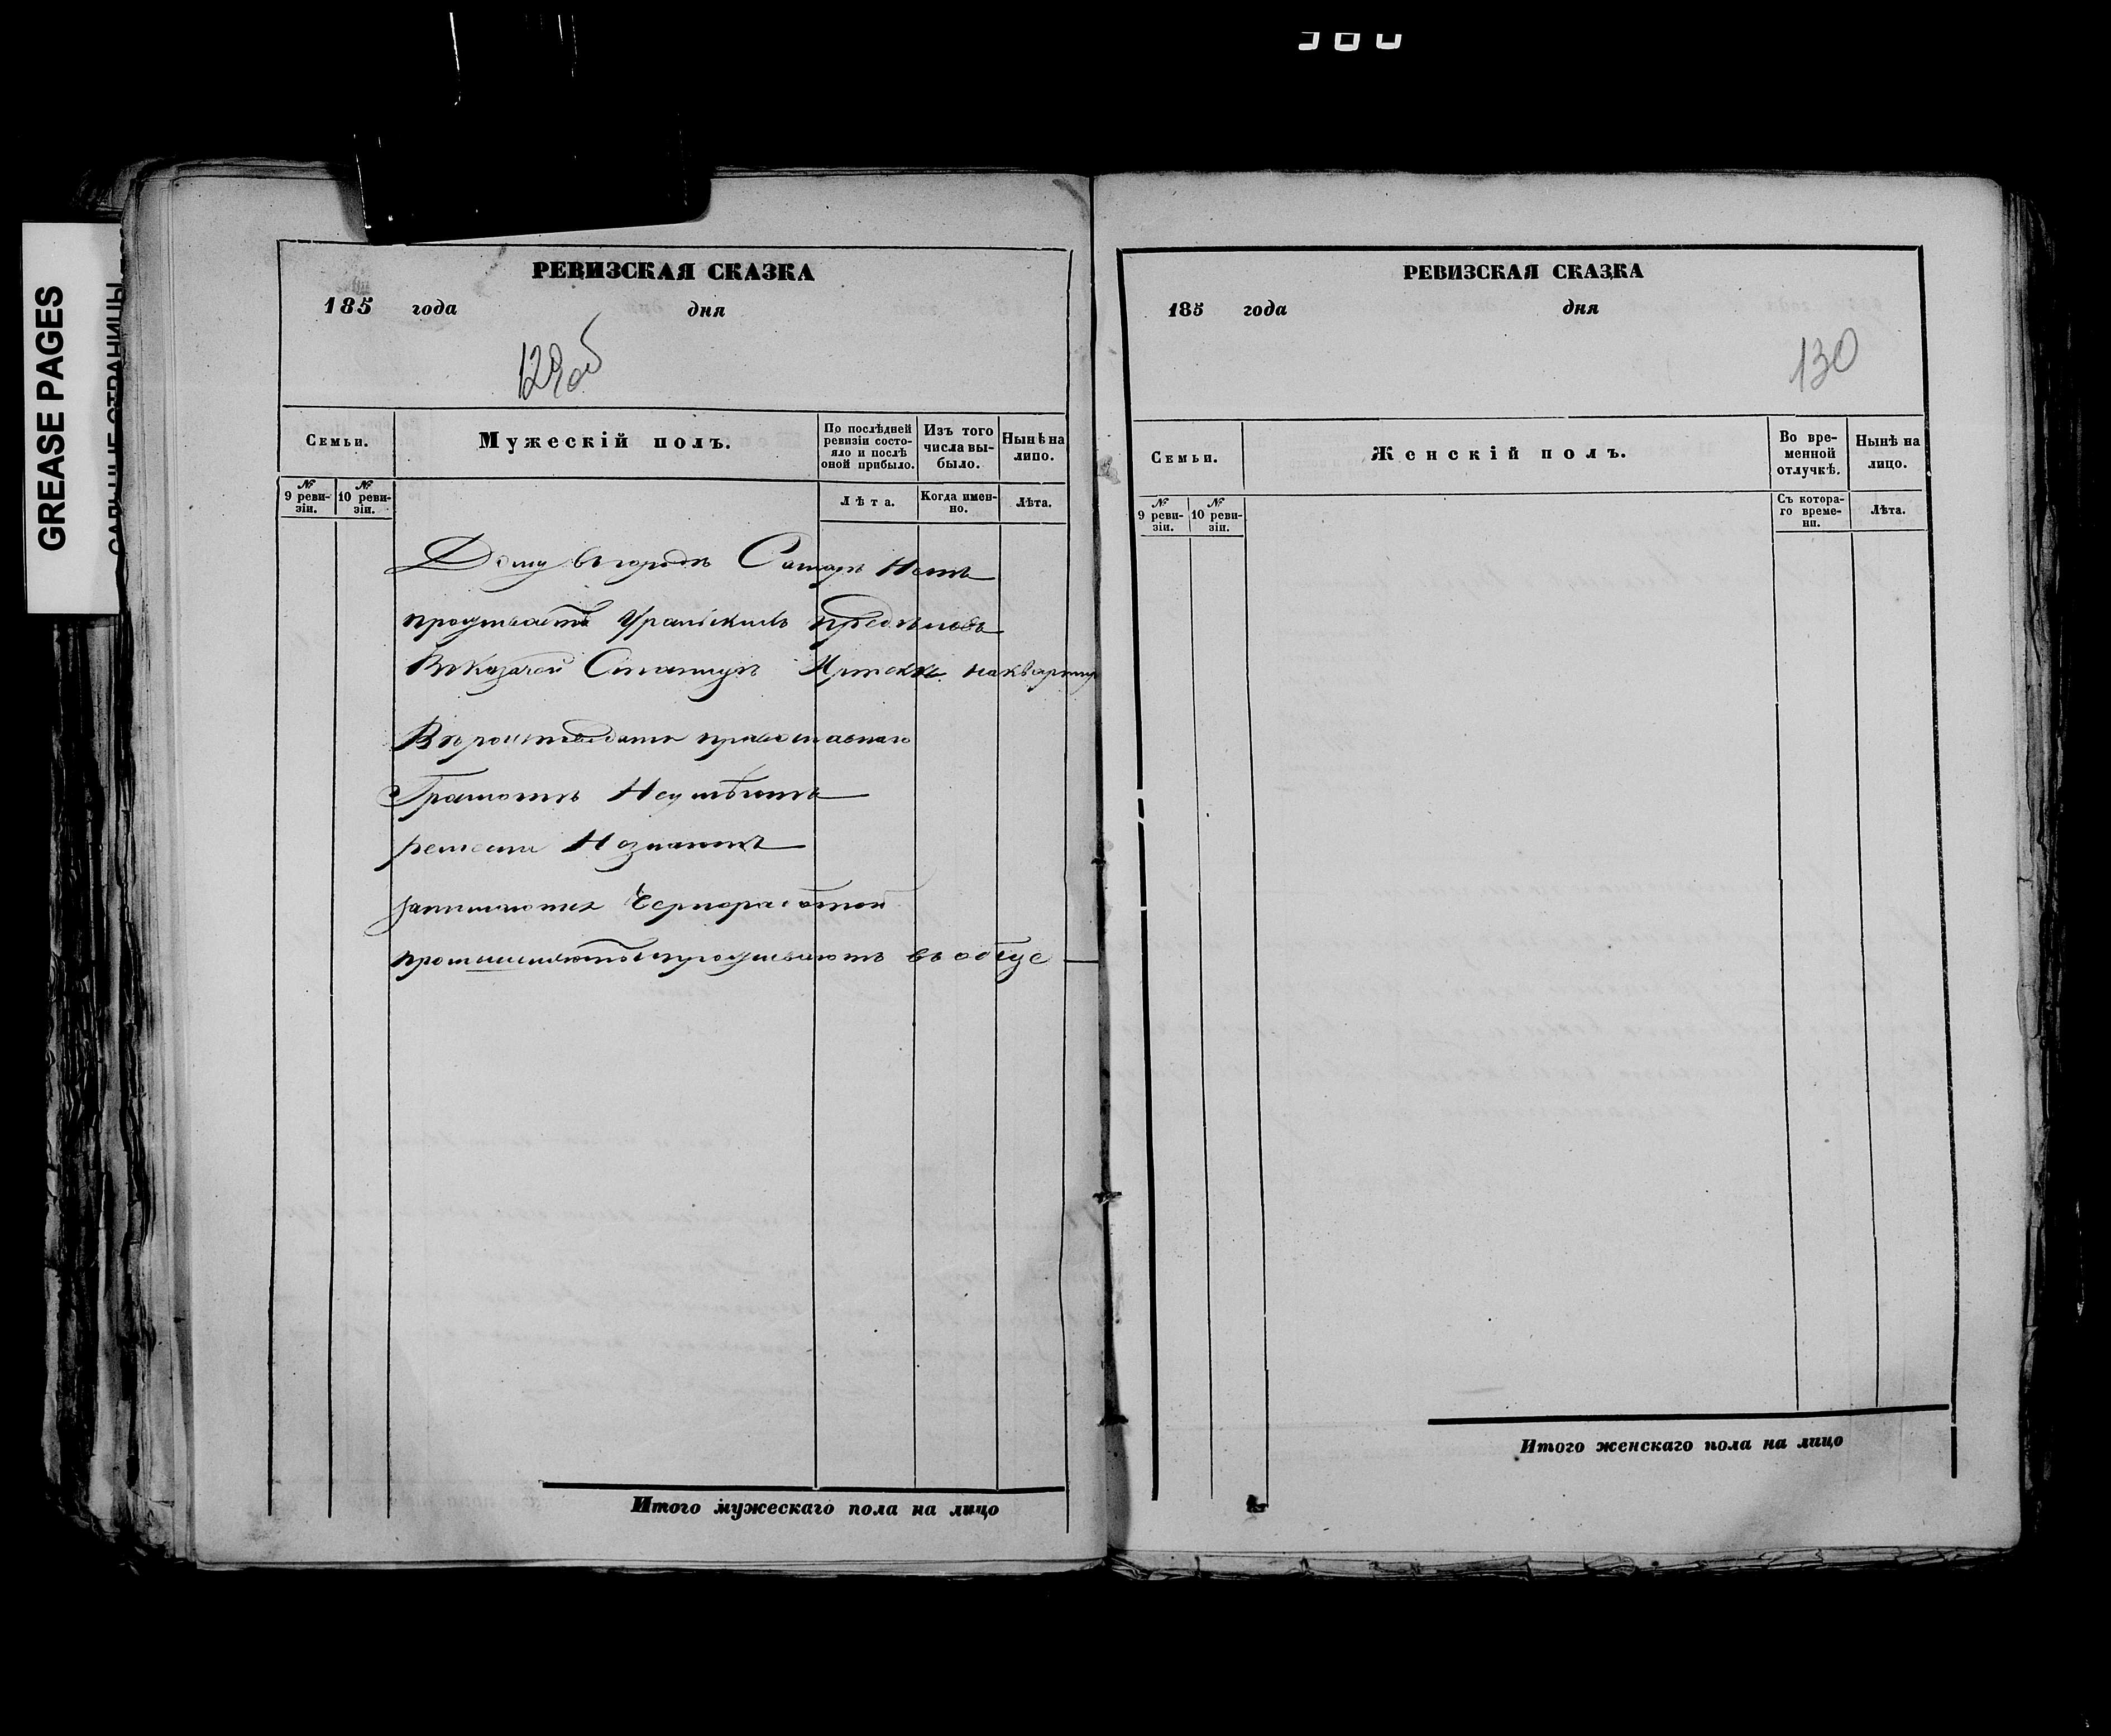 380
GREASE PAGES
САЛЬНЫЕ СТРАНИЦЫ
РЕВИЗСКАЯ СКАЗКА
185 года дня
129об
Семьи.
Мужескій полъ.
По послѣдней ревизіи состояло и послѣ оной прибыло.
Изъ того числа выбыло.
Нынѣ на лицо.
№ 9 ревизіи.
№ 10 ревизіи.
Лѣта.
Когда именно.
Лѣта.
Дому въ городѣ Самарѣ Нетъ
проживаетъ Уральскихъ пределовъ
В казачей Станицѣ на квартир
Вероисповедания православнаго
Грамотѣ Неумѣютъ
ремесла Незнаютъ
занимаются Чернорабочей
проживаютъ въ обще
Итого мужескаго пола на лицо
РЕВИЗСКАЯ СКАЗКА
185 года дня
130
Семьи.
Женскій полъ.
Во временной отлучкѣ.
Нынѣ на лицо.
№ 9 ревизіи.
№ 10 ревизіи.
Съ котораго времени.
Лѣта.
Итого женскаго пола на лицо